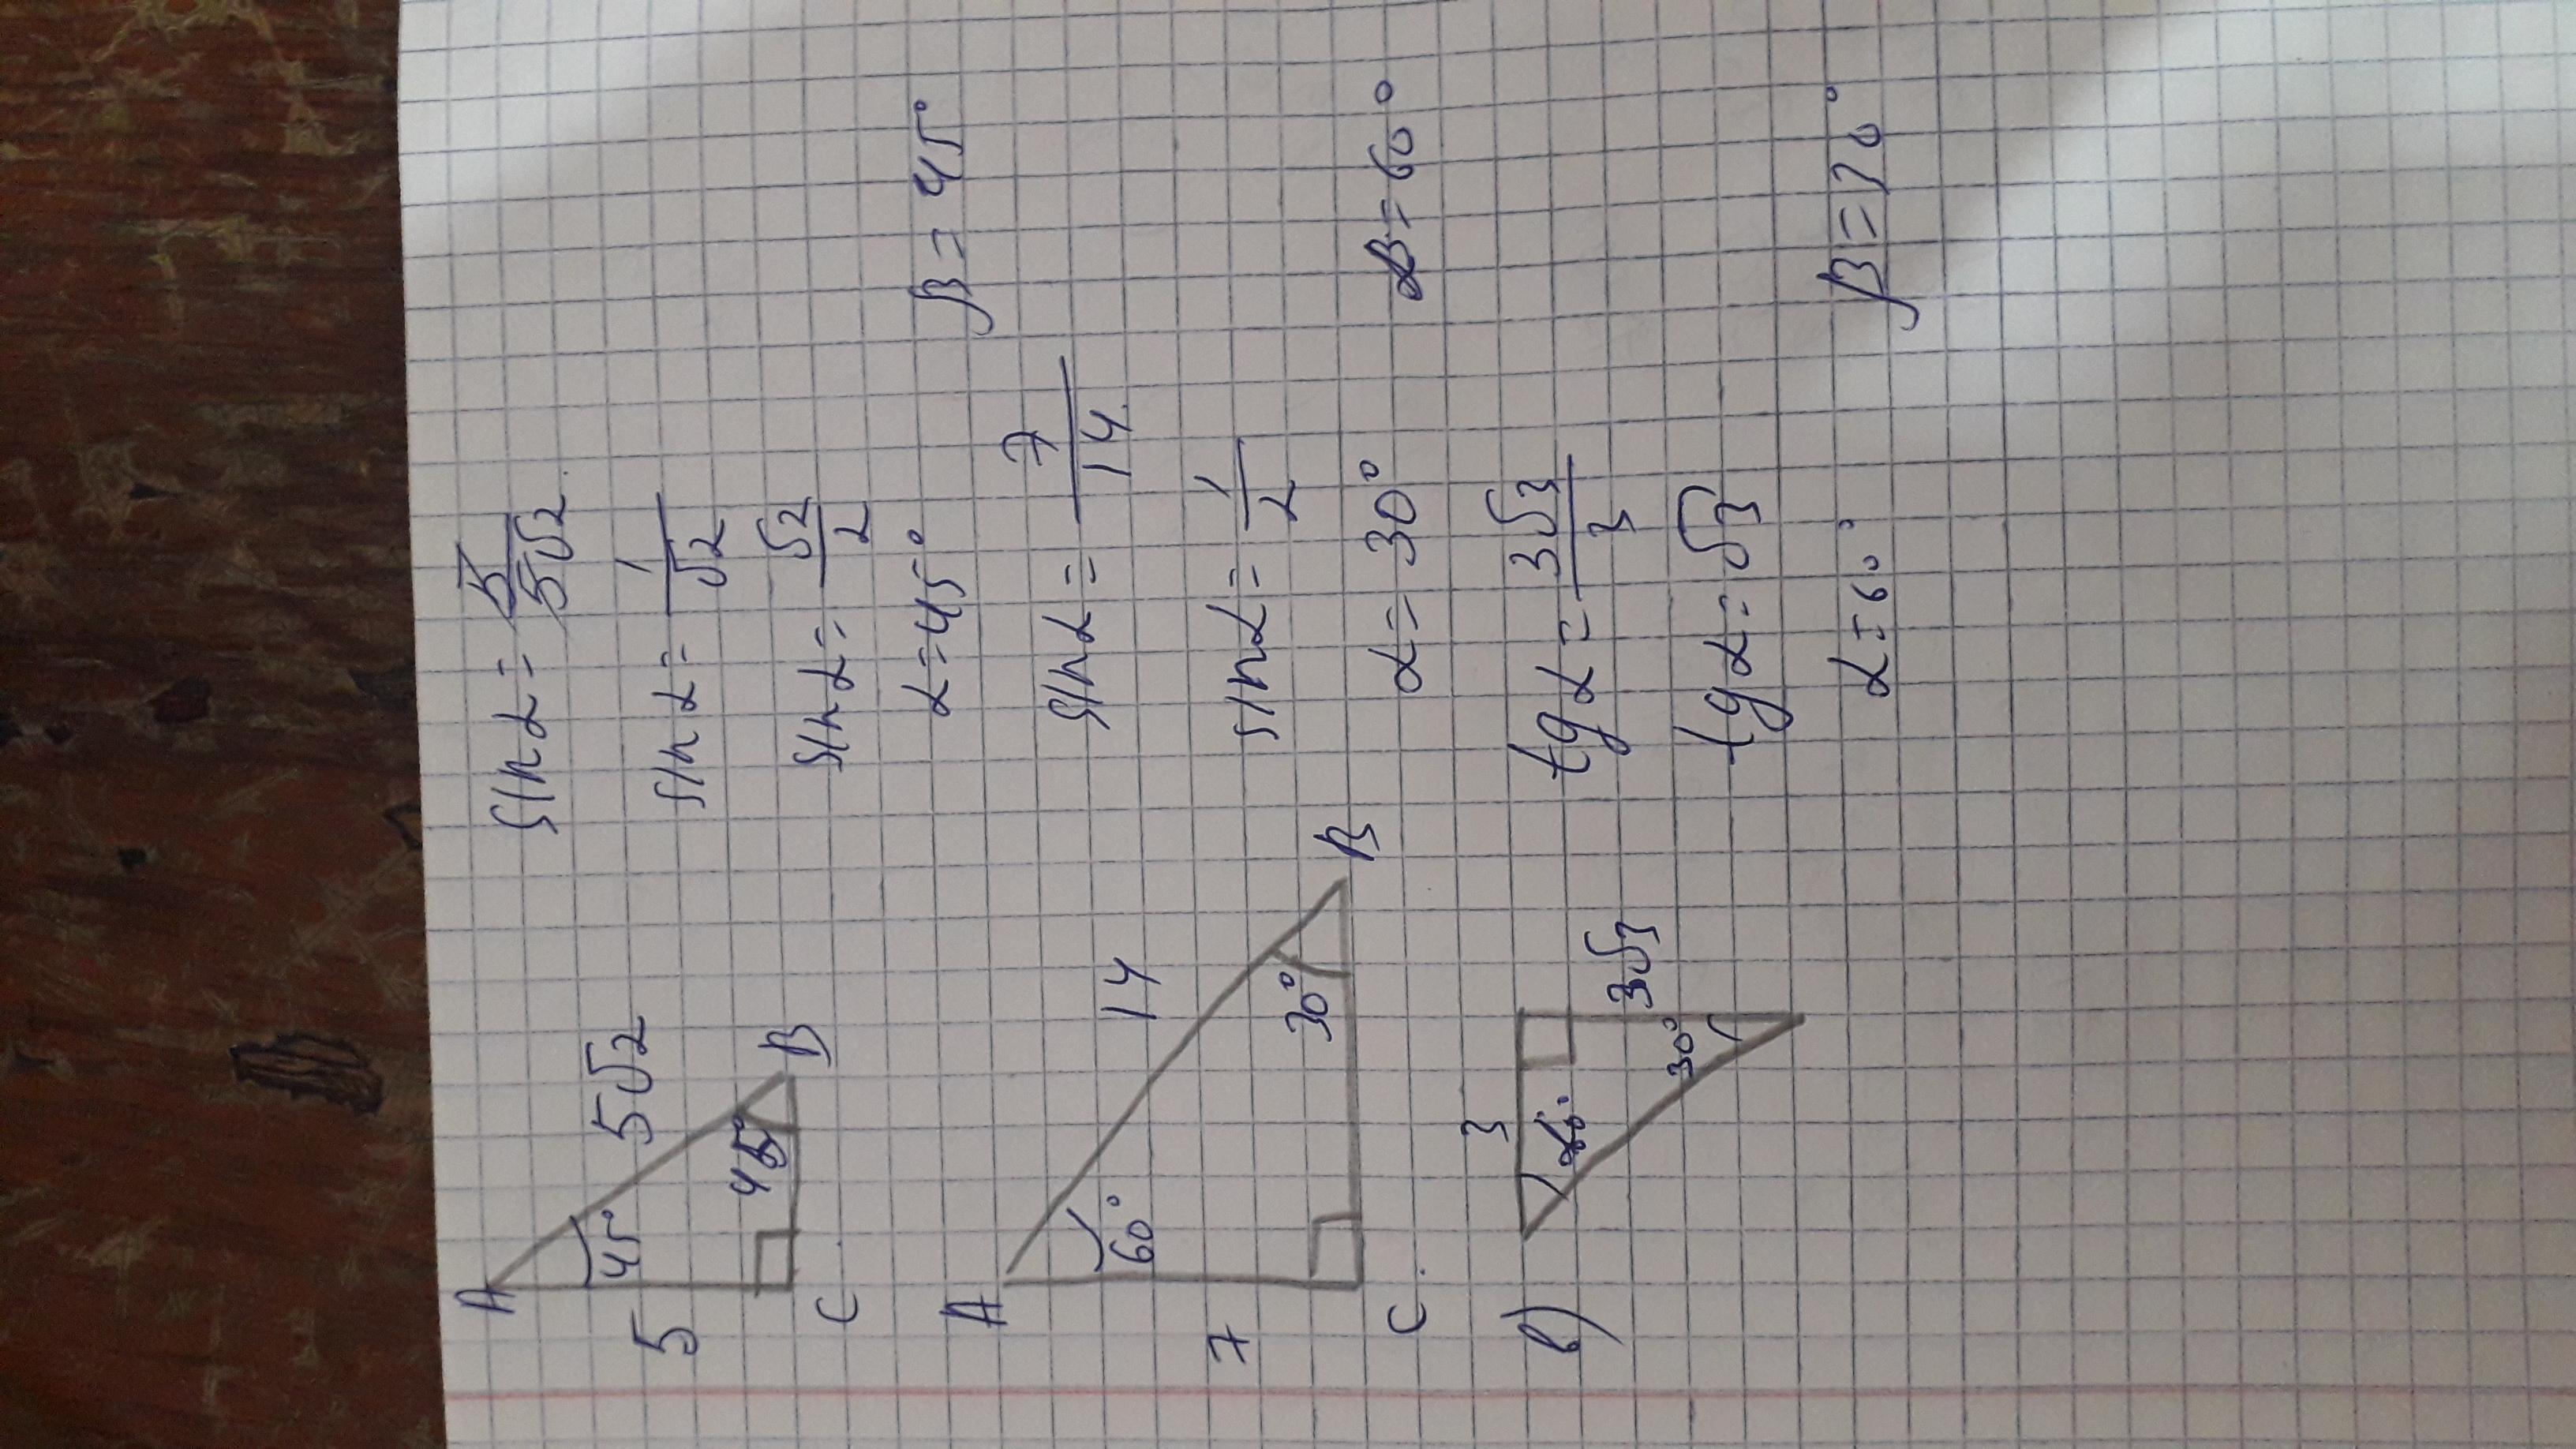 A
5
5√2
45°
45°
C
B
sin α = 5/5√2
sin α = 1/√2
sin α = √2/2
α = 45° β = 45°
A
7
14
60°
30°
C
B
sin α = 7/14
sin α = 1/2
α = 30° β = 60°
в)
3
3√3
60°
30°
tg α = 3√3/3
tg α = √3
α = 60° β = 30°